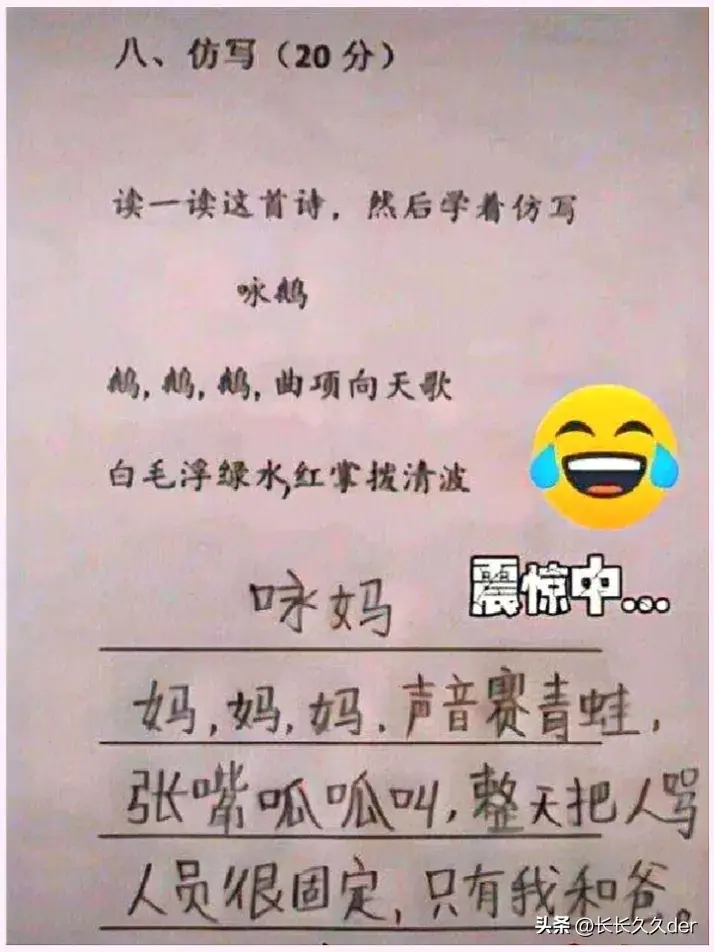 八、仿写（20 分）
读一读这首诗，然后学着仿写
咏鹅
鹅，鹅，鹅，曲项向天歌
白毛浮绿水，红掌拨清波
震惊中...
咏妈
妈，妈，妈．声音赛青蛙，
张嘴呱呱叫，整天把人骂
人员很固定，只有我和爸。
头条 @长长久久der